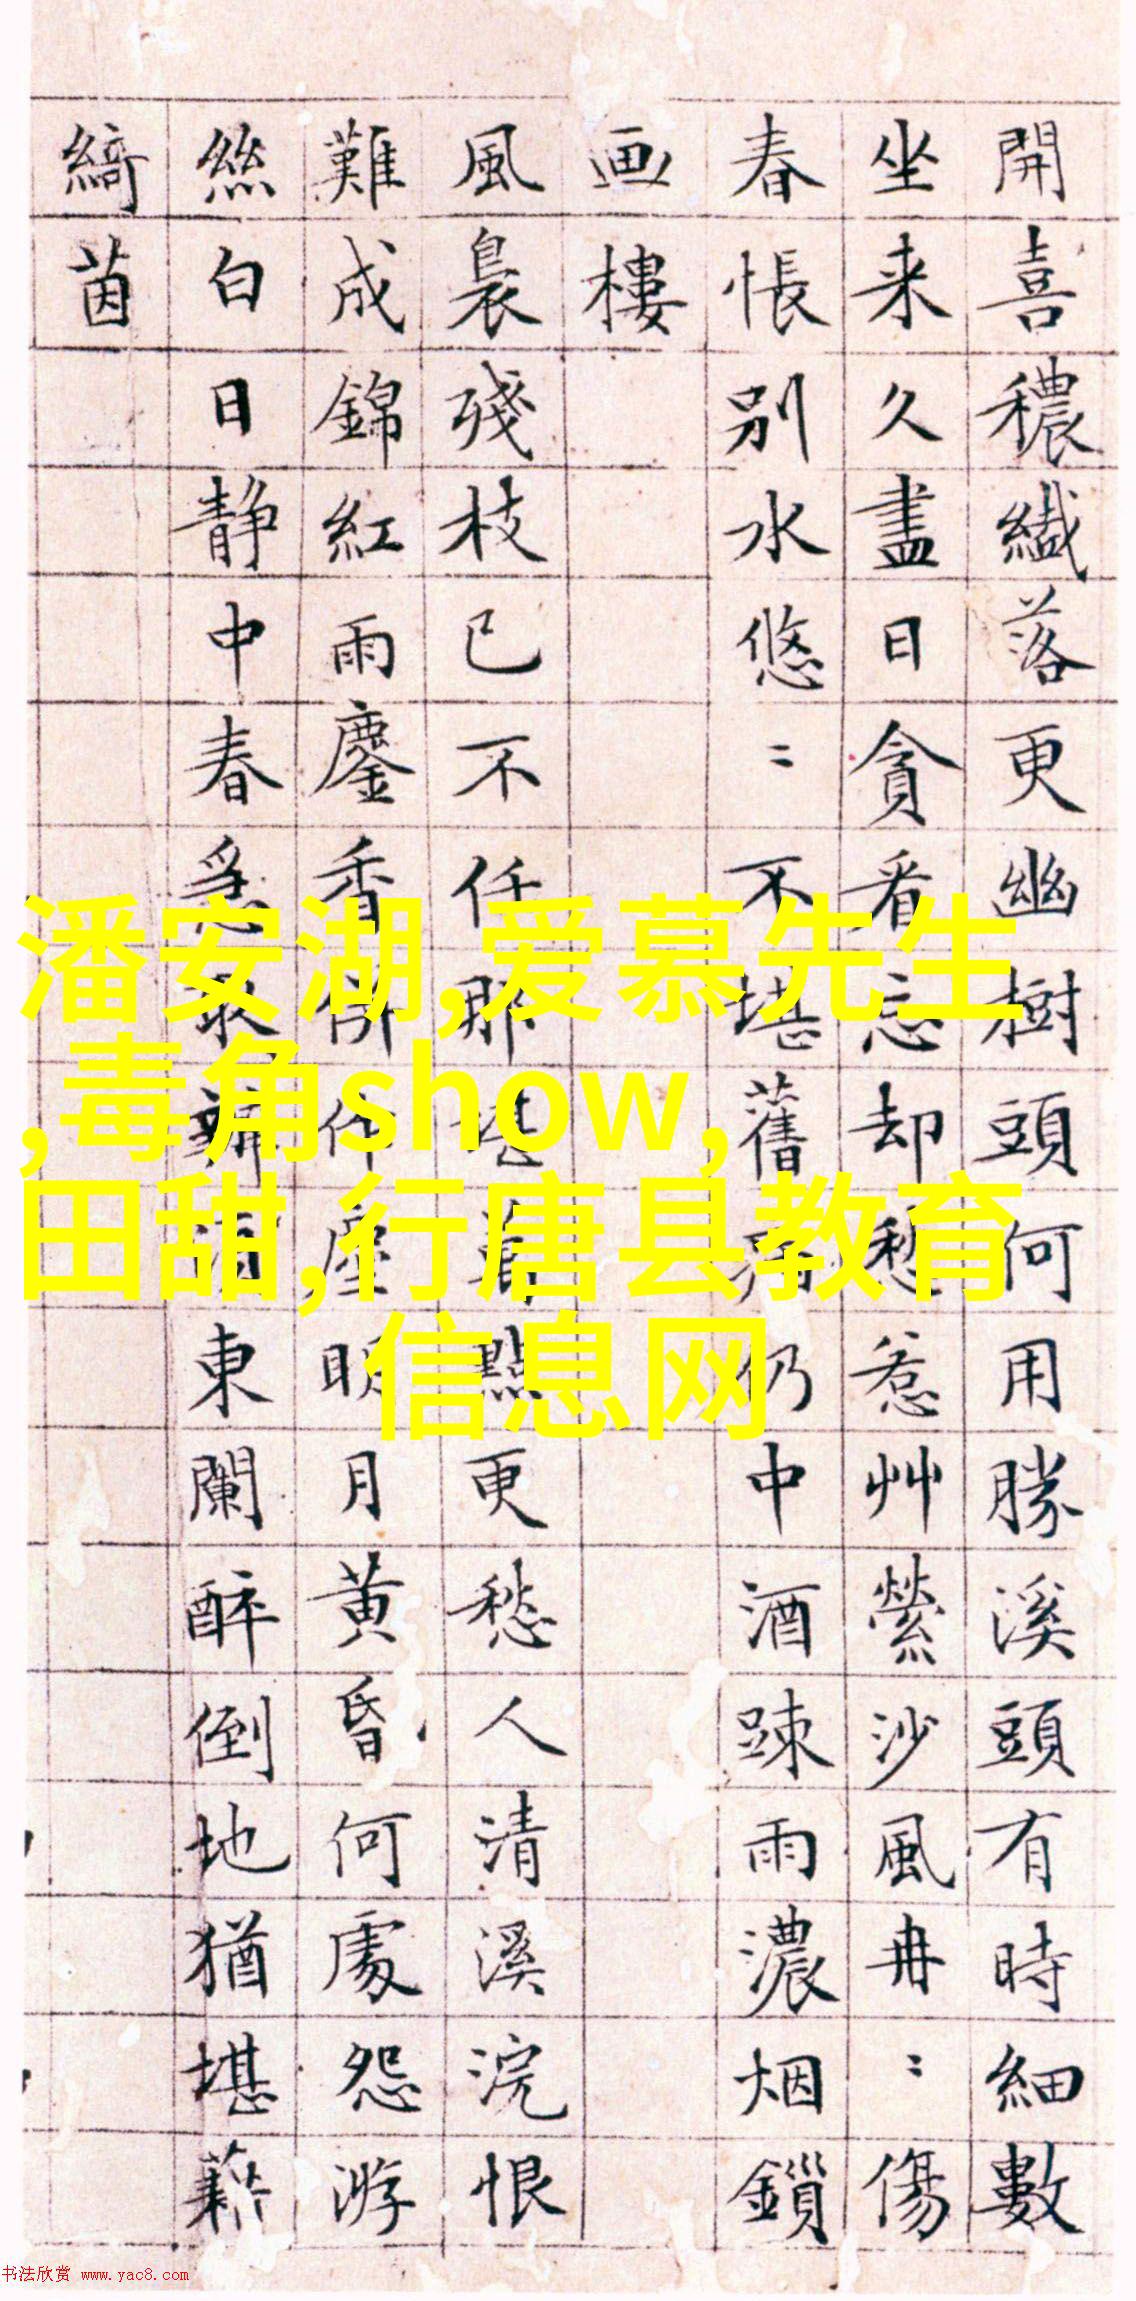 開喜穠纖落更幽樹頭何用勝溪頭有時細數
坐来久盡日貪看忘却愁惹艸縈沙風冉〻傷
春悵別水悠〻不堪舊仍中酒踈雨濃烟鎖
画樓
風裊残枝已不任那堪萬點更愁人清溪浣恨
難成錦紅雨鏖香併作塵明月黄昏何處怨游
絲白日静中春急東闌醉倒地猶堪藉
綺茵
潘安湖,爱慕先生
,毒角show,
田甜,行唐县教育
信息网
书法欣赏 www.yac8.com